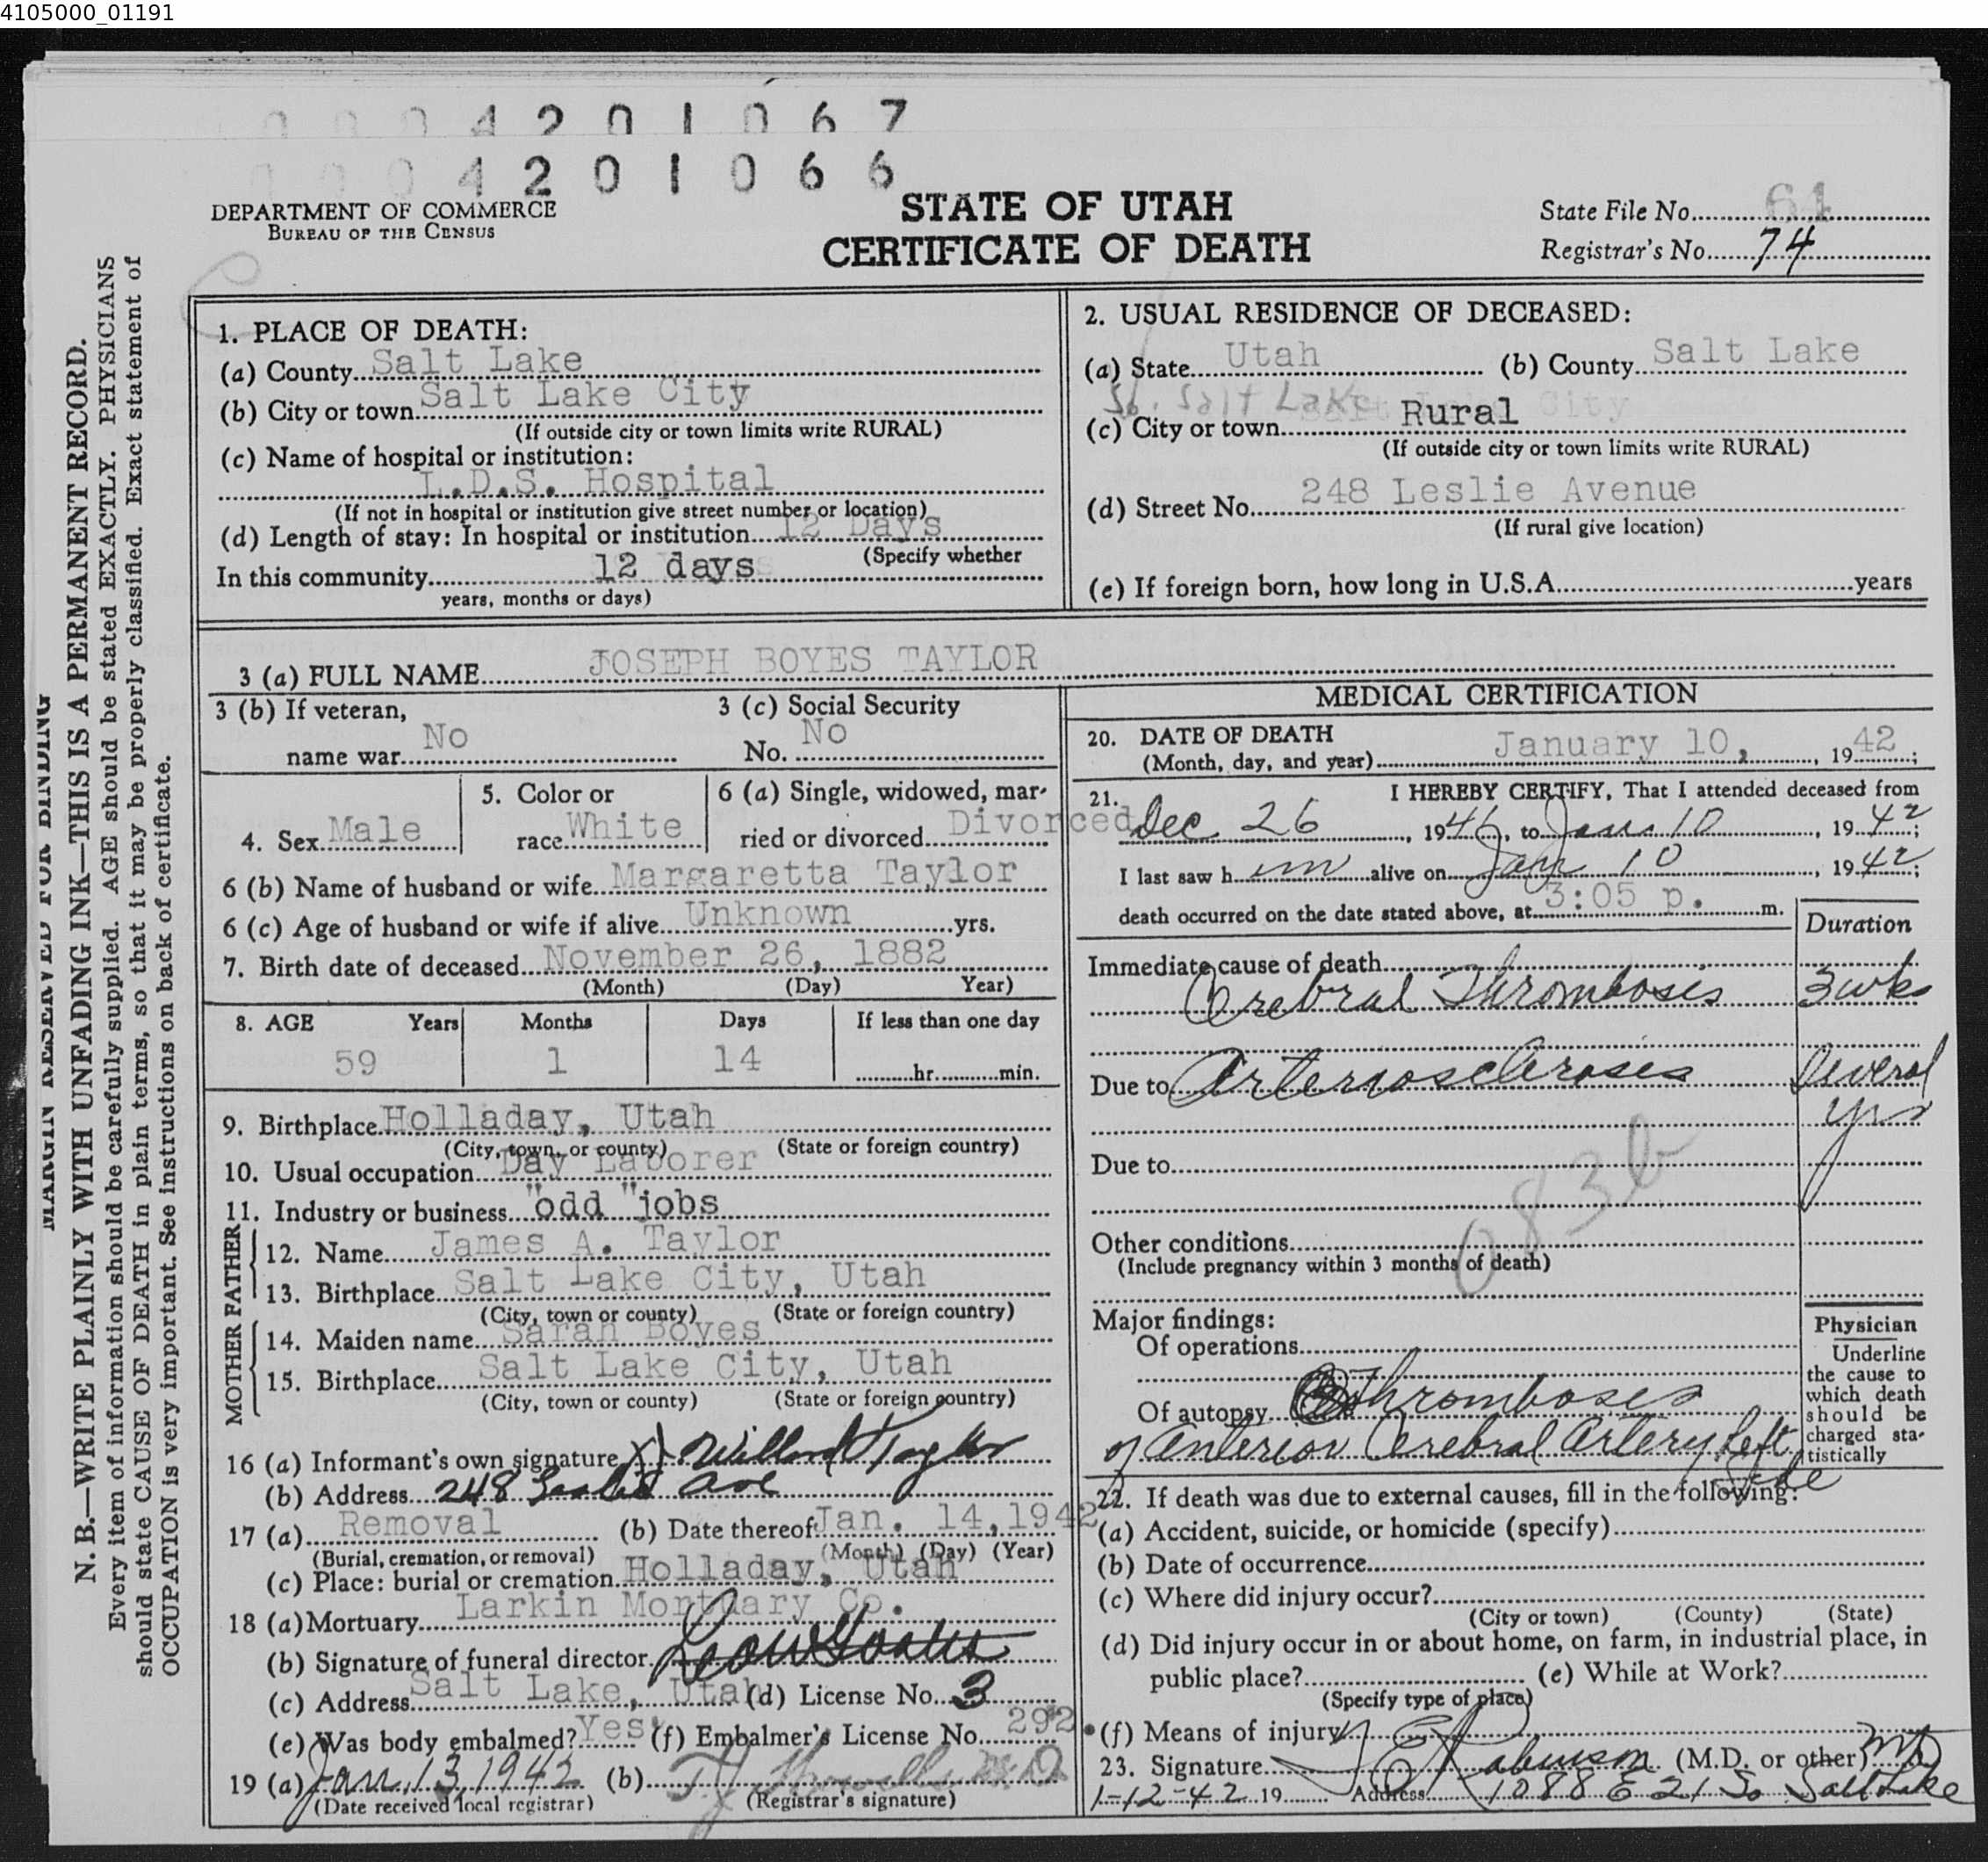 4105000_01191
4 2 0 1 0 6 7
4 2 0 1 0 6 6
DEPARTMENT OF COMMERCE
BUREAU OF THE CENSUS
STATE OF UTAH
CERTIFICATE OF DEATH
State File No. 61
Registrar's No. 74
MARGIN RESERVED FOR BINDING
N. B.—WRITE PLAINLY WITH UNFADING INK—THIS IS A PERMANENT RECORD.
Every item of information should be carefully supplied. AGE should be stated EXACTLY. PHYSICIANS
should state CAUSE OF DEATH in plain terms, so that it may be properly classified. Exact statement of
OCCUPATION is very important. See instructions on back of certificate.
1. PLACE OF DEATH:
(a) County Salt Lake
(b) City or town Salt Lake City
(If outside city or town limits write RURAL)
(c) Name of hospital or institution:
L.D.S. Hospital
(If not in hospital or institution give street number or location)
(d) Length of stay: In hospital or institution 12 Days
(Specify whether
In this community 12 days
years, months or days)
2. USUAL RESIDENCE OF DECEASED:
(a) State Utah (b) County Salt Lake
So. Salt Lake
(c) City or town Rural
(If outside city or town limits write RURAL)
(d) Street No. 248 Leslie Avenue
(If rural give location)
(e) If foreign born, how long in U.S.A. years
3 (a) FULL NAME JOSEPH BOYES TAYLOR
3 (b) If veteran,
name war No
3 (c) Social Security
No. No
4. Sex Male
5. Color or
race White
6 (a) Single, widowed, mar-
ried or divorced Divorced
6 (b) Name of husband or wife Margaretta Taylor
6 (c) Age of husband or wife if alive Unknown yrs.
7. Birth date of deceased November 26, 1882
(Month) (Day) Year)
8. AGE Years Months Days If less than one day
59 1 14 hr. min.
9. Birthplace Holladay, Utah
(City, town, or county) (State or foreign country)
10. Usual occupation Day Laborer
11. Industry or business "odd "jobs
FATHER
12. Name James A. Taylor
13. Birthplace Salt Lake City, Utah
(City, town or county) (State or foreign country)
MOTHER
14. Maiden name Sarah Boyes
15. Birthplace Salt Lake City, Utah
(City, town or county) (State or foreign country)
16 (a) Informant's own signature X Willard Taylor
(b) Address 248 Leslie Ave
17 (a) Removal (b) Date thereof Jan. 14, 1942
(Burial, cremation, or removal) (Month) (Day) (Year)
(c) Place: burial or cremation Holladay, Utah
18 (a) Mortuary Larkin Mortuary Co.
(b) Signature of funeral director
(c) Address Salt Lake, Utah (d) License No. 3
(e) Was body embalmed? Yes (f) Embalmer's License No. 292
19 (a) Jan. 13, 1942 (b) T. J. Howells MD
(Date received local registrar) (Registrar's signature)
MEDICAL CERTIFICATION
20. DATE OF DEATH
(Month, day, and year) January 10, , 19 42;
21. I HEREBY CERTIFY, That I attended deceased from
Dec 26, 1941, to Jan 10, 19 42;
I last saw h im alive on Jan 10, 19 42;
death occurred on the date stated above, at 3:05 p. m.
Duration
Immediate cause of death
Cerebral Thrombosis 3 wks
Due to Arteriosclerosis Several
yrs
Due to
083b
Other conditions
(Include pregnancy within 3 months of death)
Major findings:
Of operations
Of autopsy Thromboses
of Anterior Cerebral Artery, Left
Side
Physician
Underline
the cause to
which death
should be
charged sta-
tistically
22. If death was due to external causes, fill in the following:
(a) Accident, suicide, or homicide (specify)
(b) Date of occurrence
(c) Where did injury occur?
(City or town) (County) (State)
(d) Did injury occur in or about home, on farm, in industrial place, in
public place? (e) While at Work?
(Specify type of place)
(f) Means of injury
23. Signature Robinson (M.D. or other) MD
1-12-42 19 Address 1088 E 21 So Salt Lake